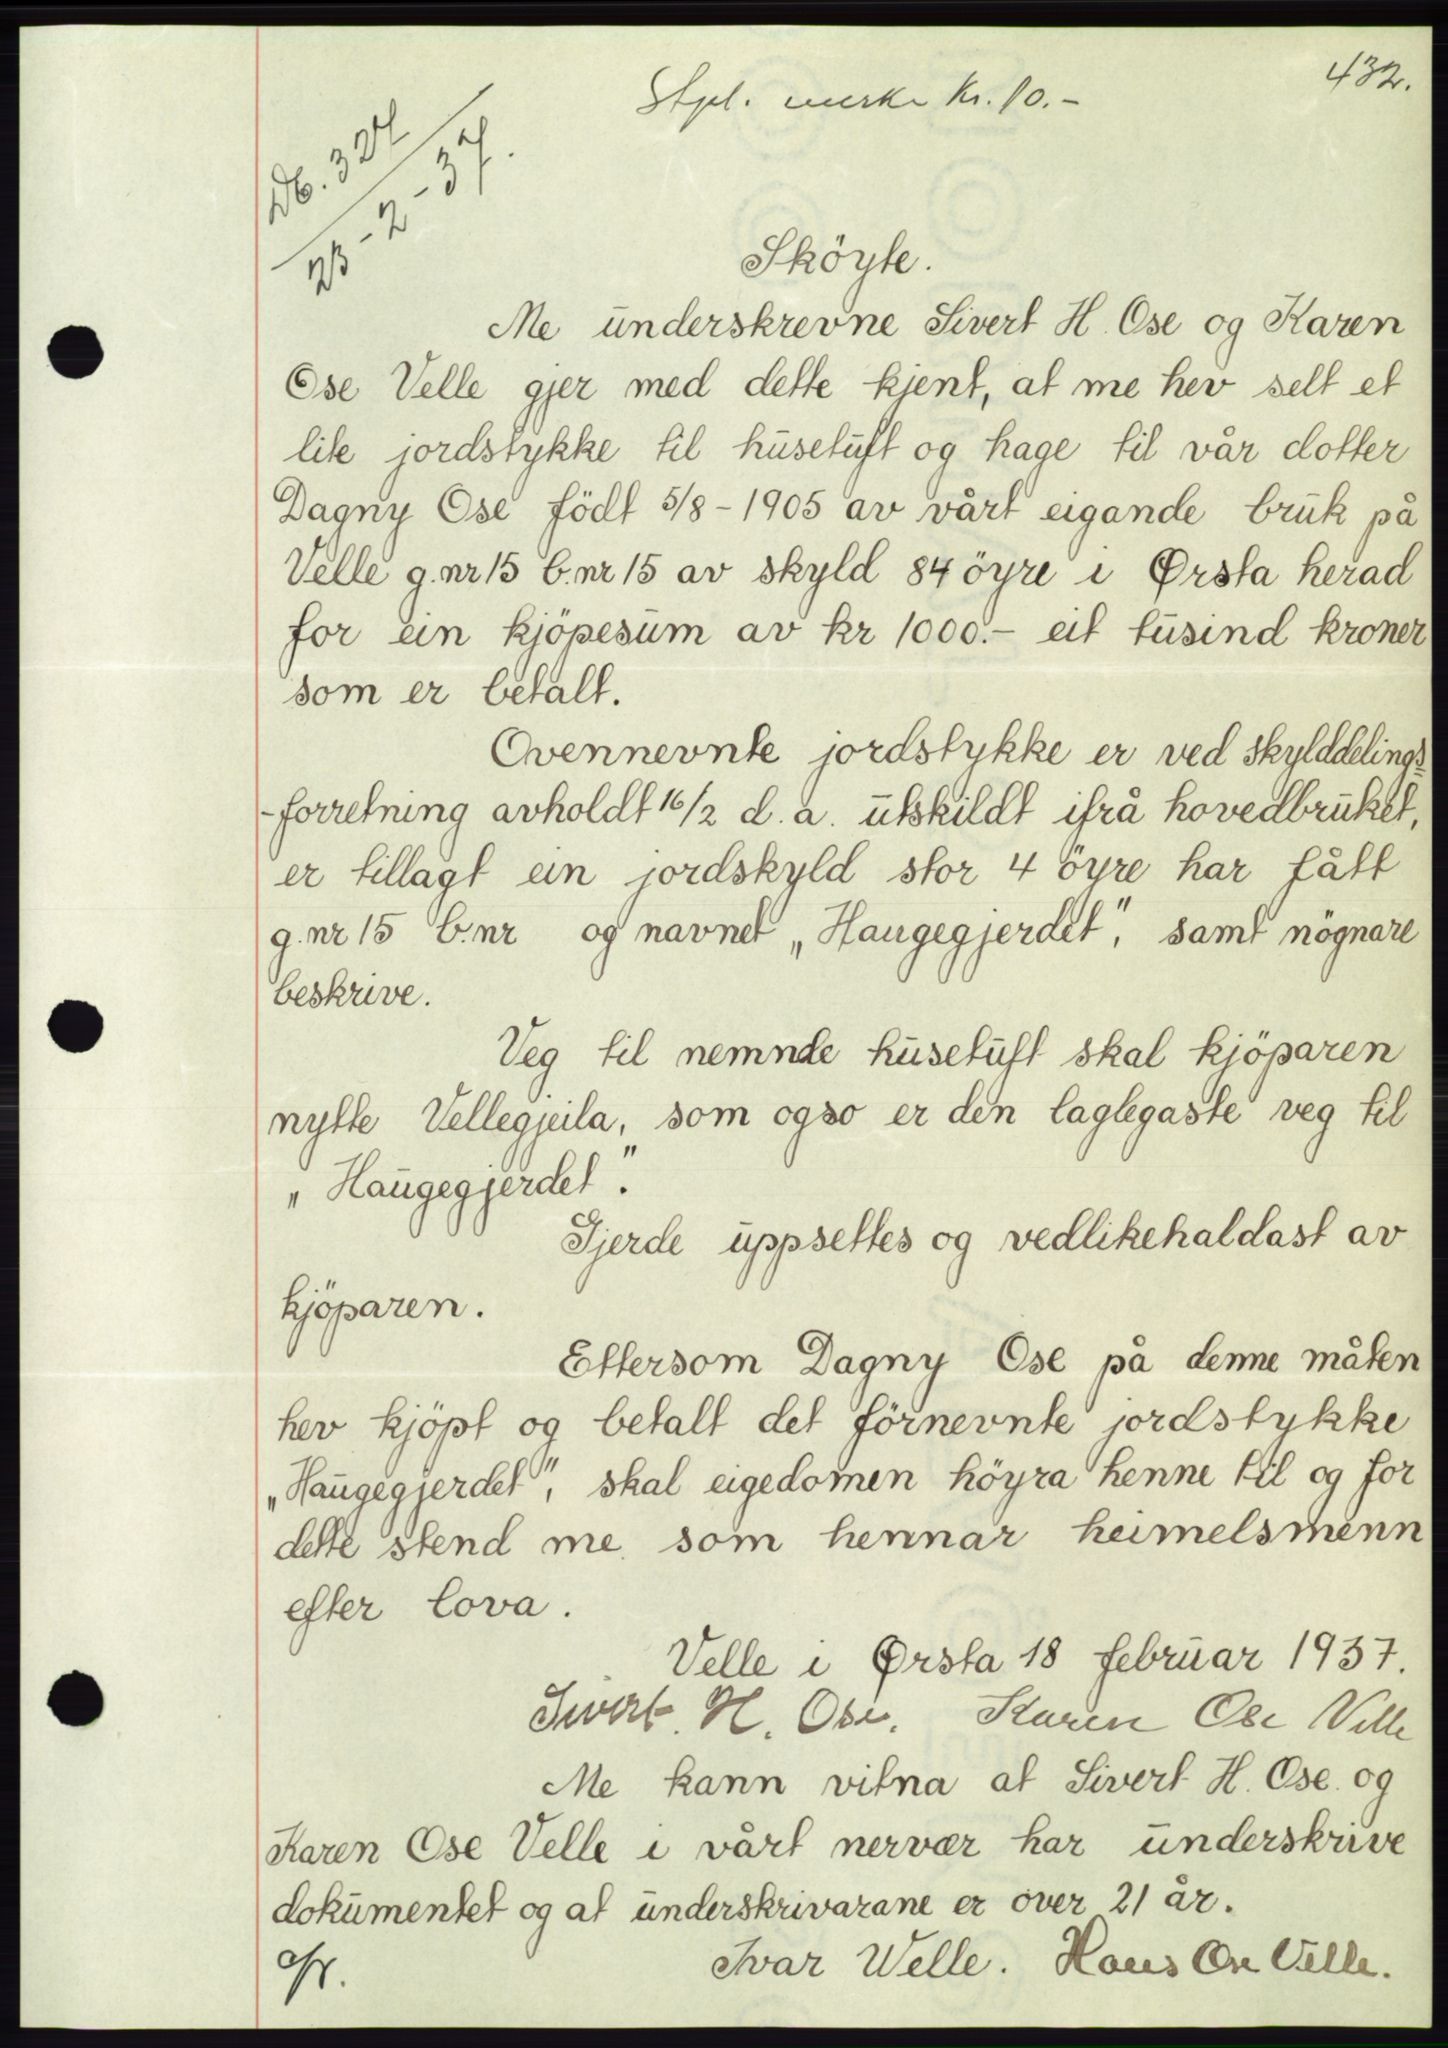 432.
Stpl. merke Kr. 10.-
Db. 327
23-2-37.
Sköyte.
Me underskrevne Sivert H. Ose og Karen
Ose Velle gjer med dette kjent, at me hev selt et
lite jordstykke til husetuft og hage til vår dotter
Dagny Ose födt 5/8-1905 av vårt eigande bruk på
Velle g.nr 15 b.nr 15 av skyld 84 öyre i Ørsta herad
for ein kjöpesum av kr 1000.- eit tusind kroner
som er betalt.
Ovennevnte jordstykke er ved skylddelings=
-forretning avholdt 16/2 d.a. utskildt ifrå hovedbruket,
er tillagt ein jordskyld stor 4 öyre har fått
g.nr 15 b.nr og navnet „Haugegjerdet", samt nögnare
beskrive.
Veg til nemnde husetuft skal kjöparen
nytte Vellegjeila, som ogso er den laglegaste veg til
„Haugegjerdet".
Gjerde uppsettes og vedlikehaldast av
kjöparen.
Ettersom Dagny Ose på denne måten
hev kjöpt og betalt det förnevnte jordstykke
„Haugegjerdet", skal eigedomen höyra henne til og for
dette stend me som hennar heimelsmenn
efter lova.
Velle i Ørsta 18 februar 1937.
Sivert H. Ose. Karen Ose Velle
Me kann vitna at Sivert H. Ose og
Karen Ose Velle i vårt nervær har underskrive
dokumentet og at underskrivarane er over 21 år.
Ivar Welle. Hans Ose Velle.